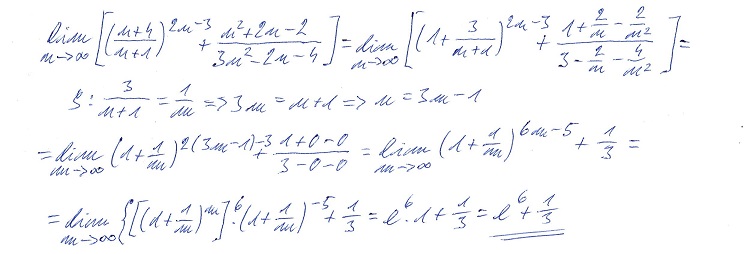 lim n→∞ [((n+4)/(n+1))^(2n-3) + (n²+2n-2)/(3n²-2n-4)] = lim n→∞ [(1+3/(n+1))^(2n-3) + (1+2/n-2/n²)/(3-2/n-4/n²)] =
S: 3/(n+1) = 1/m => 3m = n+1 => n = 3m-1
= lim m→∞ (1+1/m)^(2(3m-1)-3) + (1+0-0)/(3-0-0) = lim m→∞ (1+1/m)^(6m-5) + 1/3 =
= lim m→∞ {[(1+1/m)^m]^6 · (1+1/m)^(-5) + 1/3 = e^6 · 1 + 1/3 = e^6 + 1/3